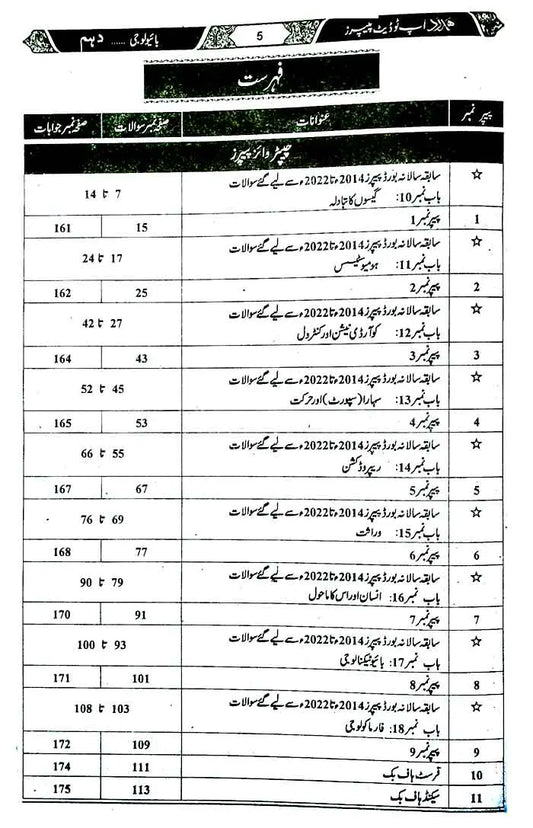 ہمدرد اپ ٹو ڈیٹ پیپرز 5 بائیولوجی ...... دہم
فہرست
پیپر نمبر عنوانات صفحہ نمبر سوالات صفحہ نمبر جوابات
چیپٹر وائز پیپرز
☆ سابقہ سالانہ بورڈ پیپرز 2014ء تا 2022ء سے لیے گئے سوالات 7 تا 14
باب نمبر 10: گیسوں کا تبادلہ
1 پیپر نمبر 1 15 161
☆ سابقہ سالانہ بورڈ پیپرز 2014ء تا 2022ء سے لیے گئے سوالات 17 تا 24
باب نمبر 11: ہومیوسٹیسس
2 پیپر نمبر 2 25 162
☆ سابقہ سالانہ بورڈ پیپرز 2014ء تا 2022ء سے لیے گئے سوالات 27 تا 42
باب نمبر 12: کوآرڈی نیشن اور کنٹرول
3 پیپر نمبر 3 43 164
☆ سابقہ سالانہ بورڈ پیپرز 2014ء تا 2022ء سے لیے گئے سوالات 45 تا 52
باب نمبر 13: سہارا (سپورٹ) اور حرکت
4 پیپر نمبر 4 53 165
☆ سابقہ سالانہ بورڈ پیپرز 2014ء تا 2022ء سے لیے گئے سوالات 55 تا 66
باب نمبر 14: ریپروڈکشن
5 پیپر نمبر 5 67 167
☆ سابقہ سالانہ بورڈ پیپرز 2014ء تا 2022ء سے لیے گئے سوالات 69 تا 76
باب نمبر 15: وراثت
6 پیپر نمبر 6 77 168
☆ سابقہ سالانہ بورڈ پیپرز 2014ء تا 2022ء سے لیے گئے سوالات 79 تا 90
باب نمبر 16: انسان اور اس کا ماحول
7 پیپر نمبر 7 91 170
☆ سابقہ سالانہ بورڈ پیپرز 2014ء تا 2022ء سے لیے گئے سوالات 93 تا 100
باب نمبر 17: بائیوٹیکنالوجی
8 پیپر نمبر 8 101 171
☆ سابقہ سالانہ بورڈ پیپرز 2014ء تا 2022ء سے لیے گئے سوالات 103 تا 108
باب نمبر 18: فارماکولوجی
9 پیپر نمبر 9 109 172
10 فرسٹ ہاف بک 111 174
11 سیکنڈ ہاف بک 113 175